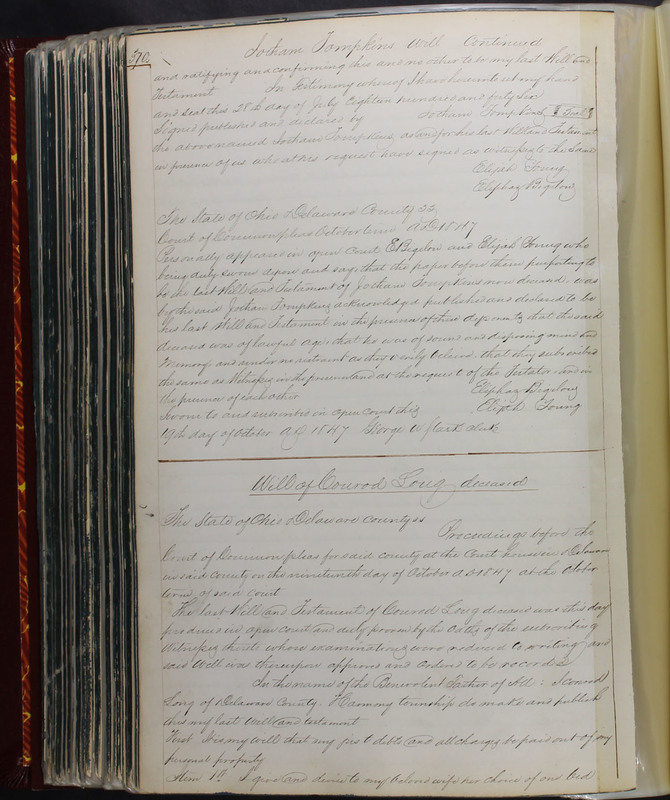 370
Jotham Tompkins Will Continued
and ratifying and confirming this and no other to be my last Will and
Testament In Testimony whereof I have hereunto set my hand
and seal this 28th day of July Eighteen hundred and forty six
Signed published and declared by Jotham Tompkins Seal
the above named Jotham Tompkins, as and for his last Will and Testament
in presence of us who at his request have signed as witnesses to the same
Elijah Young
Eliphaz Bigelow
The State of Ohio Delaware County SS
Court of Common pleas October term AD 1847
Personally appeared in open Court E Bigelow and Elijah Young who
being duly sworn depose and say, that the paper before them purporting to
be the last Will and Testament of Jotham Tompkins now deceased was
by the said Jotham Tompkins acknowledged published and declared to be
his last Will and Testament in the presence of these deponents that the said
deceased was of lawful age that he was of sound and disposing mind and
Memory and under no restraint as they verily believe that they subscribed
the same as Witnesses in the presence and at the request of the Testator and in
the presence of each other Eliphaz Bigelow
Sworn to and subscribed in open Court this Elijah Young
19th day of October AD 1847 George W Stark Clerk
Will of Conrod Long deceased
The State of Ohio Delaware County ss
Proceedings before the
Court of Common pleas for said county at the Court house in Delaware
in said County on the nineteenth day of October AD 1847 at the October
term of said Court
The last Will and Testament of Conrod Long deceased was this day
produced in open court and duly proven by the oaths of the subscribing
Witnesses thereto whose examinations were reduced to writing and
said Will was thereupon approved and ordered to be recorded
In the name of the Benevolent Father of All: I Conrod
Long of Delaware County, Harmony township do make and publish
this my last Will and testament
First It is my will that my just debts and all charges be paid out of my
personal property
Item 1st I give and devise to my beloved wife her choice of one bed